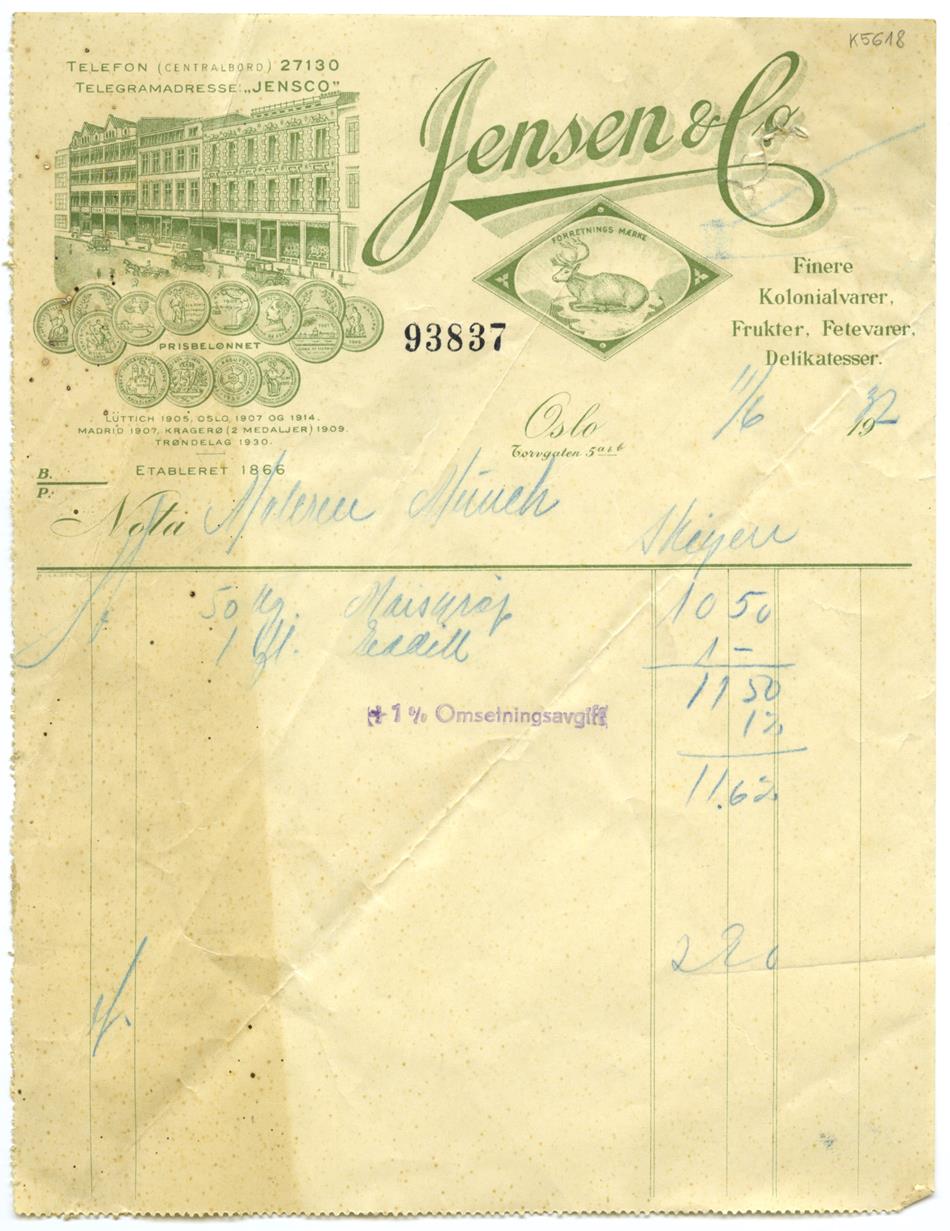 K5618
TELEFON (CENTRALBORD) 27130
TELEGRAMADRESSE: „JENSCO”
Jensen & Co
FORRETNINGS MÆRKE
Finere
Kolonialvarer,
Frukter, Fetevarer,
Delikatesser.
PRISBELØNNET
93837
LÜTTICH 1905, OSLO, 1907 OG 1914.
MADRID 1907, KRAGERØ (2 MEDALJER) 1909.
TRØNDELAG 1930.
ETABLERET 1866
Oslo 11/6 1932
Torvgaten 5 a & b
B.
P.
Nota Maleren Münch
Skøyen
50 kg. 10 50
1 fl. Eddik 1 –
11 50
+ 1 % Omsetningsavgift
12
11.62
220